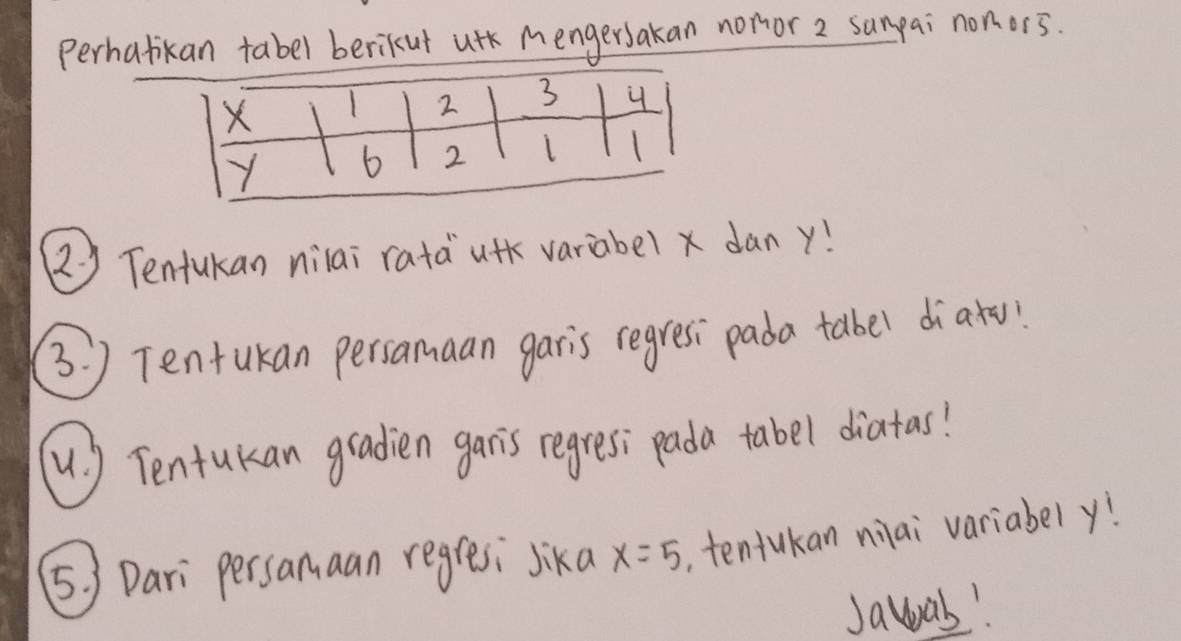 Perhatikan tabel berikut utk mengerjakan nomor 2 sampai nomor 5.
X 1 2 3 4
Y 6 2 1 1
2.) Tentukan nilai rata" utk variabel x dan y!
3.) Tentukan persamaan garis regresi pada tabel di atas!
4.) Tentukan gradien garis regresi pada tabel diatas!
5.) Dari persamaan regresi jika x = 5, tentukan nilai variabel y!
Jawab!